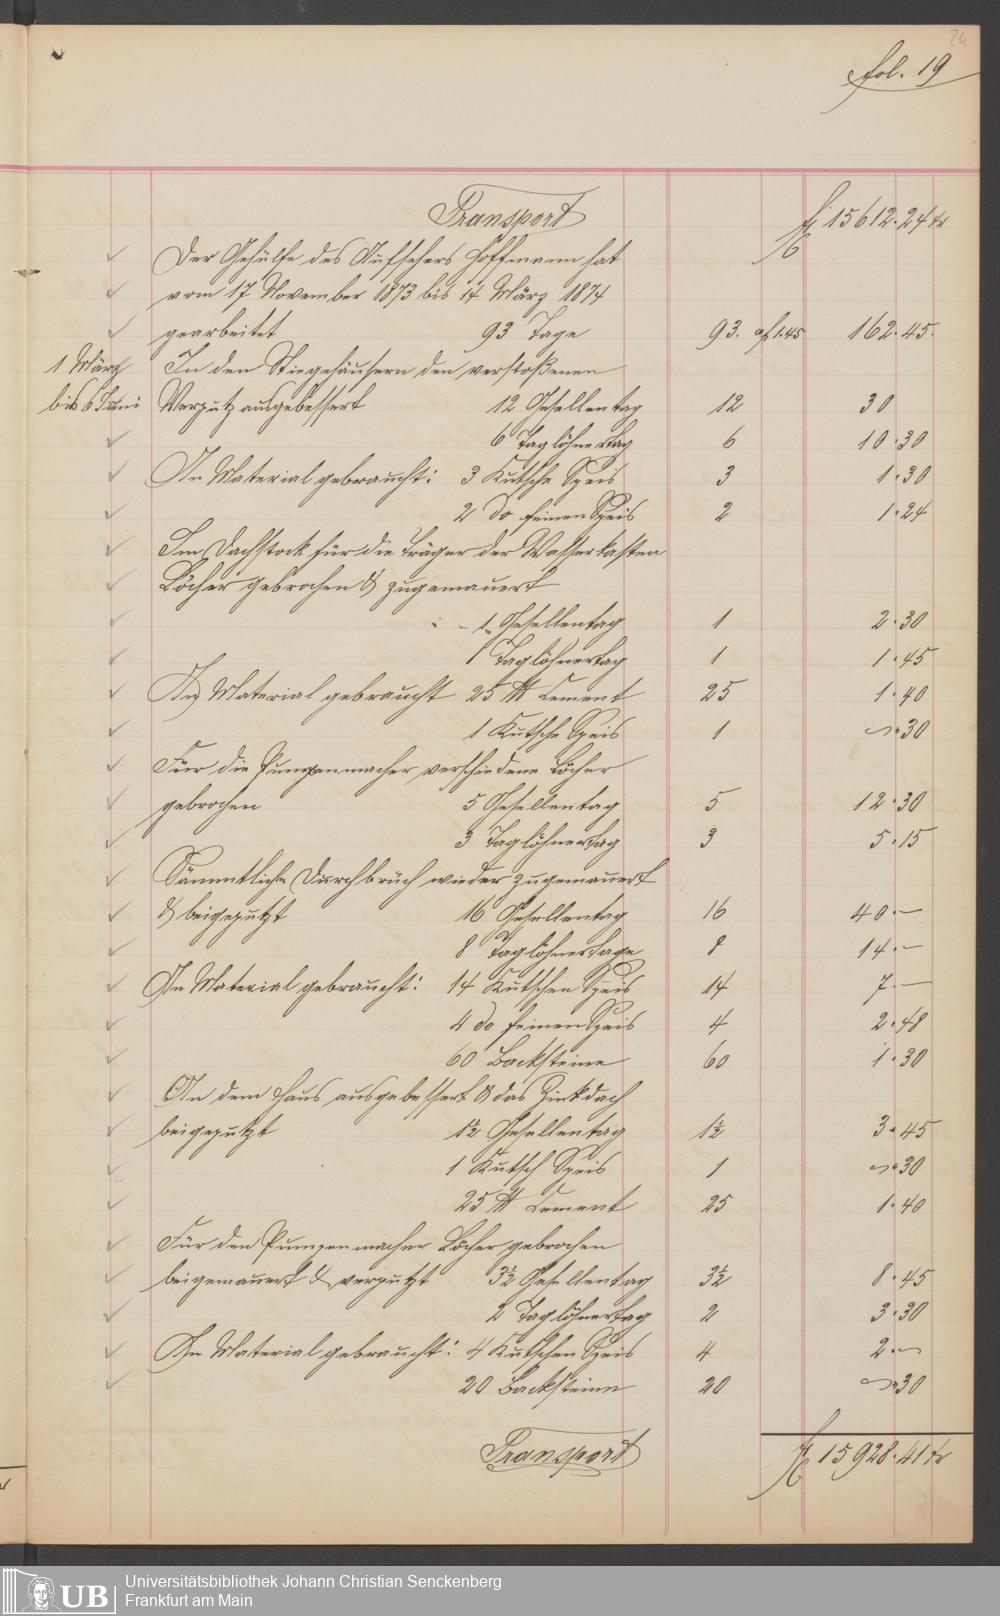 24
fol. 19
Transport fl 15612.24 kr
Der Gehülfe des Aufsehers Hoffmann hat
vom 17 November 1873 bis 14 März 1874
gearbeitet 93 Tage 93. af 1.45 162.45.
1 März In den Stiegehäusern den verstoßenen
bis 6 Juni Verputz ausgebessert 12 Gesellentag 12 30
6 Taglöhnertag 6 10.30
An Material gebraucht: 3 Kutsche Speis 3 1.30
2 do feinen Speis 2 1.24
Im Dachstock für die Träger der Wasserkasten
Löcher gebrochen & zugemauert
1 Gesellentag 1 2.30
1 Taglöhnertag 1 1.45
An Material gebraucht 25 ℔ Cement 25 1.40
1 Kutsche Speis 1 ~.30
Für die Pumpenmacher verschiedene Löcher
gebrochen 5 Gesellentag 5 12.30
3 Taglöhnertag 3 5.15
Sämmtliche Durchbrüch wieder zugemauert
& beigeputzt 16 Gesellentag 16 40.—
8 Taglöhnertage 8 14.—
An Material gebraucht: 14 Kutschen Speis 14 7.—
4 do feinen Speis 4 2.48
60 Backsteine 60 1.30
An dem Haus ausgebessert & das Zinkdach
beigeputzt 1½ Gesellentag 1½ 3.45
1 Kutsch Speis 1 ~.30
25 ℔ Cement 25 1.40
Für den Pumpenmacher Löcher gebrochen
beigemauert & verputzt 3½ Gesellentag 3½ 8.45
2 Taglöhnertag 2 3.30
An Material gebraucht: 4 Kutschen Speis 4 2.~
20 Backsteine 20 ~.30
Transport fl 15928.41 kr
UB
Universitätsbibliothek Johann Christian Senckenberg
Frankfurt am Main